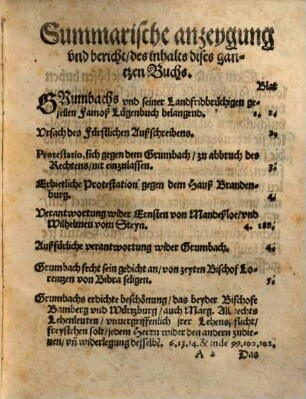 Summarische anzeygung
vnd bericht/des inhalts dises gan-
tzen Buchs.
Blat
GRumbachs vnd seiner Landfridbrüchigen ge-
sellen Famoß Lügenbuch belangend. 1. 2.
Vrsach des Fürstlichen Außschreibens. 2.
Protestatio, sich gegen dem Grumbach/zu abbruch des
Rechtens/nit einzulassen. 3.
Erbietliche Protestation gegen dem Hauß Branden-
burg. 4.
Verantwortung wider Ernsten von Mandeßloe/vnd
Wilhelmen vom Steyn. 4. 188.
Außfürliche verantwortung wider Grumbach. 4.
Grumbach fecht sein gedicht an/von zeyten Bischof Lo-
rentzen von Bidra seligen. 5.
Grumbachs erdichte beschönung/das beyder Bischofe
Bamberg vnd Würtzburg/auch Marg. Alb. rechts
Lehenleuten/vnuergriffenlich jrer Lehens/flicht/
freystehen solt/jedem Herrn wider den andern zudie-
nen/vñ widerlegung desselbē. 6. 13. 14. & inde 99. 100. 102.
A 2 Das